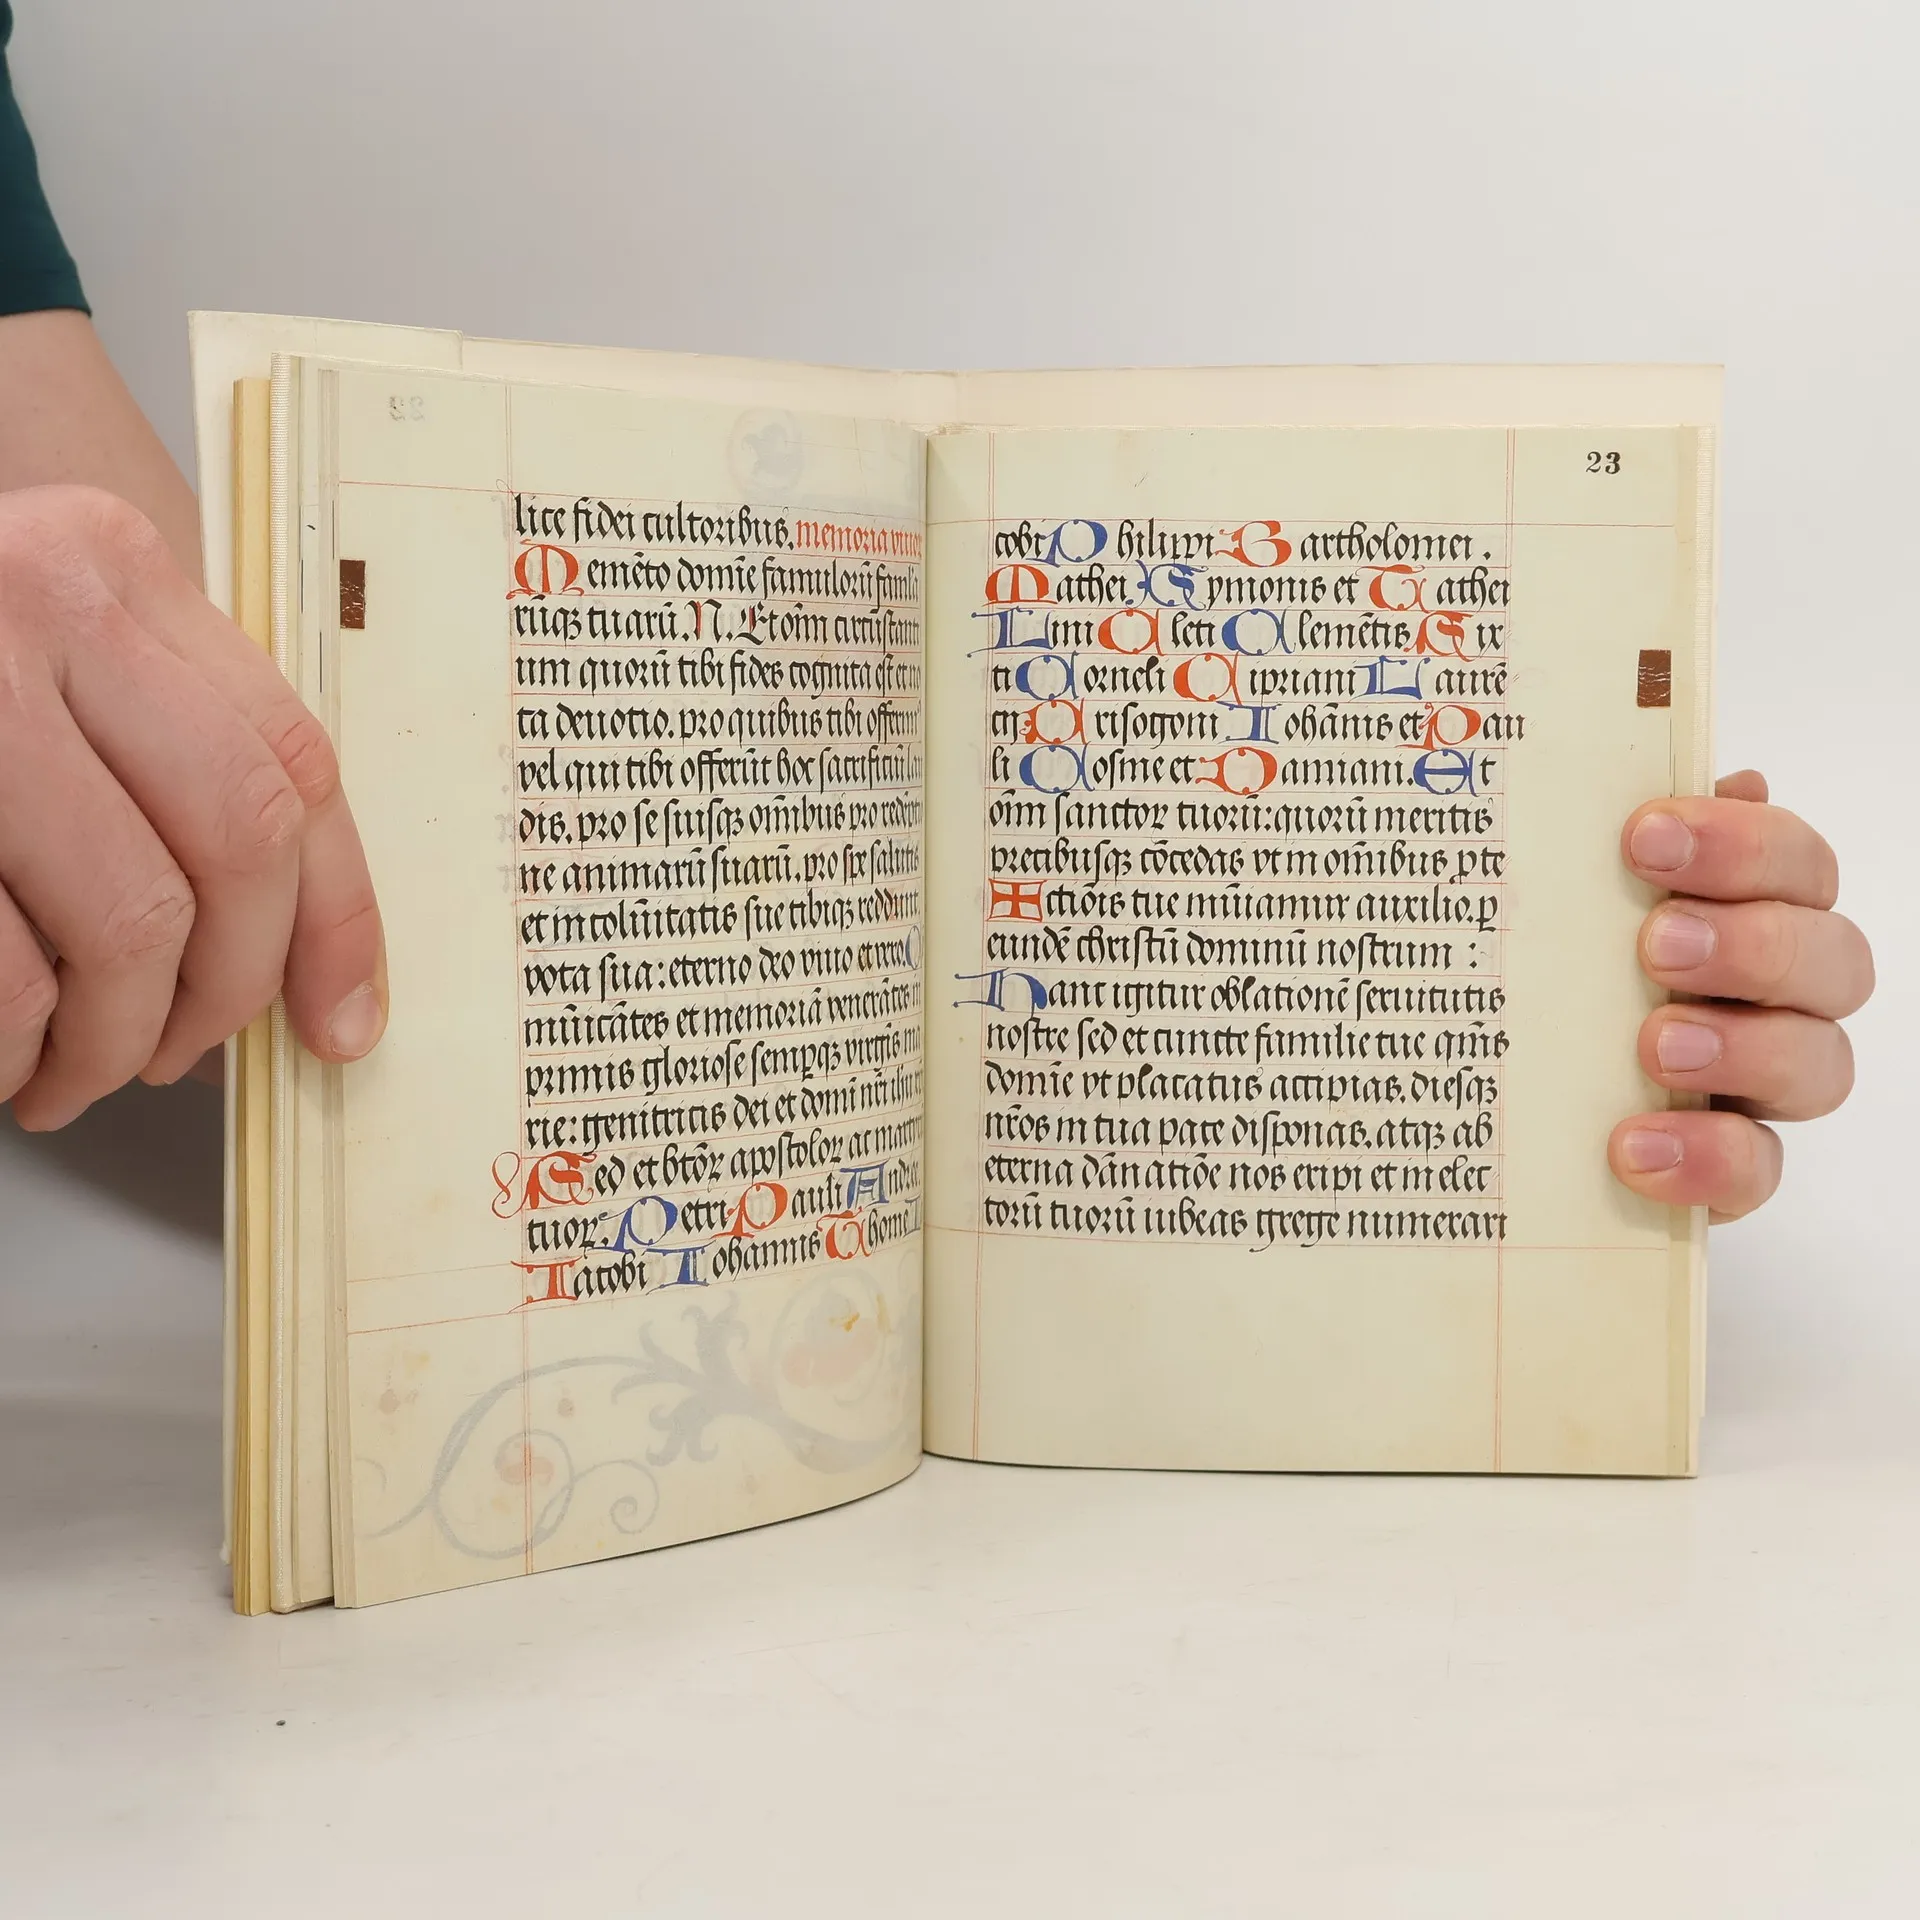 lice fidei cultoribus. memoria viuor
Memēto domīe famulorū famula
rūqꝫ tuarū. N. Et oīm circūstanti
um quorū tibi fides cognita est et no
ta deuotio. pro quibus tibi offerim
vel qui tibi offerūt hoc sacrificiū lau
dis. pro se suisqꝫ om̄ibus pro redēptio
ne animarū suarū. pro spe salutis
et incolūitatis sue tibiqꝫ reddunt
vota sua: eterno deo viuo et vero. C
mūicātes et memoriā venerātes in
primis gloriose semꝑqꝫ virgīs ma
rie: genitricis dei et domī nr̄i ihu
Sed et btōꝝ apostoloꝝ ac martyrū
tuoꝝ. Petri Pauli Andree
Iacobi Iohannis Thome
23
cobi Philippi Bartholomei.
Mathei Symonis et Tathei
Lini Cleti Clemētis Six
ti Corneli Cipriani Laurē
cij Crisogoni Iohānis et Pau
li Cosme et Damiani. Et
oīm sanctoꝝ tuorū: quorū meritis
precibusqꝫ cōcedas vt in om̄ibus ꝓte
ctiōis tue mūiamur auxilio. ꝑ
eundē christū dominū nostrum :
Hanc igitur oblationē seruitutis
nostre sed et cuncte familie tue qm̄s
domīe vt placatus accipias. diesqꝫ
nr̄os in tua pace disponas. atqꝫ ab
eterna dānatiōe nos eripi et in elec
torū tuorū iubeas grege numerari